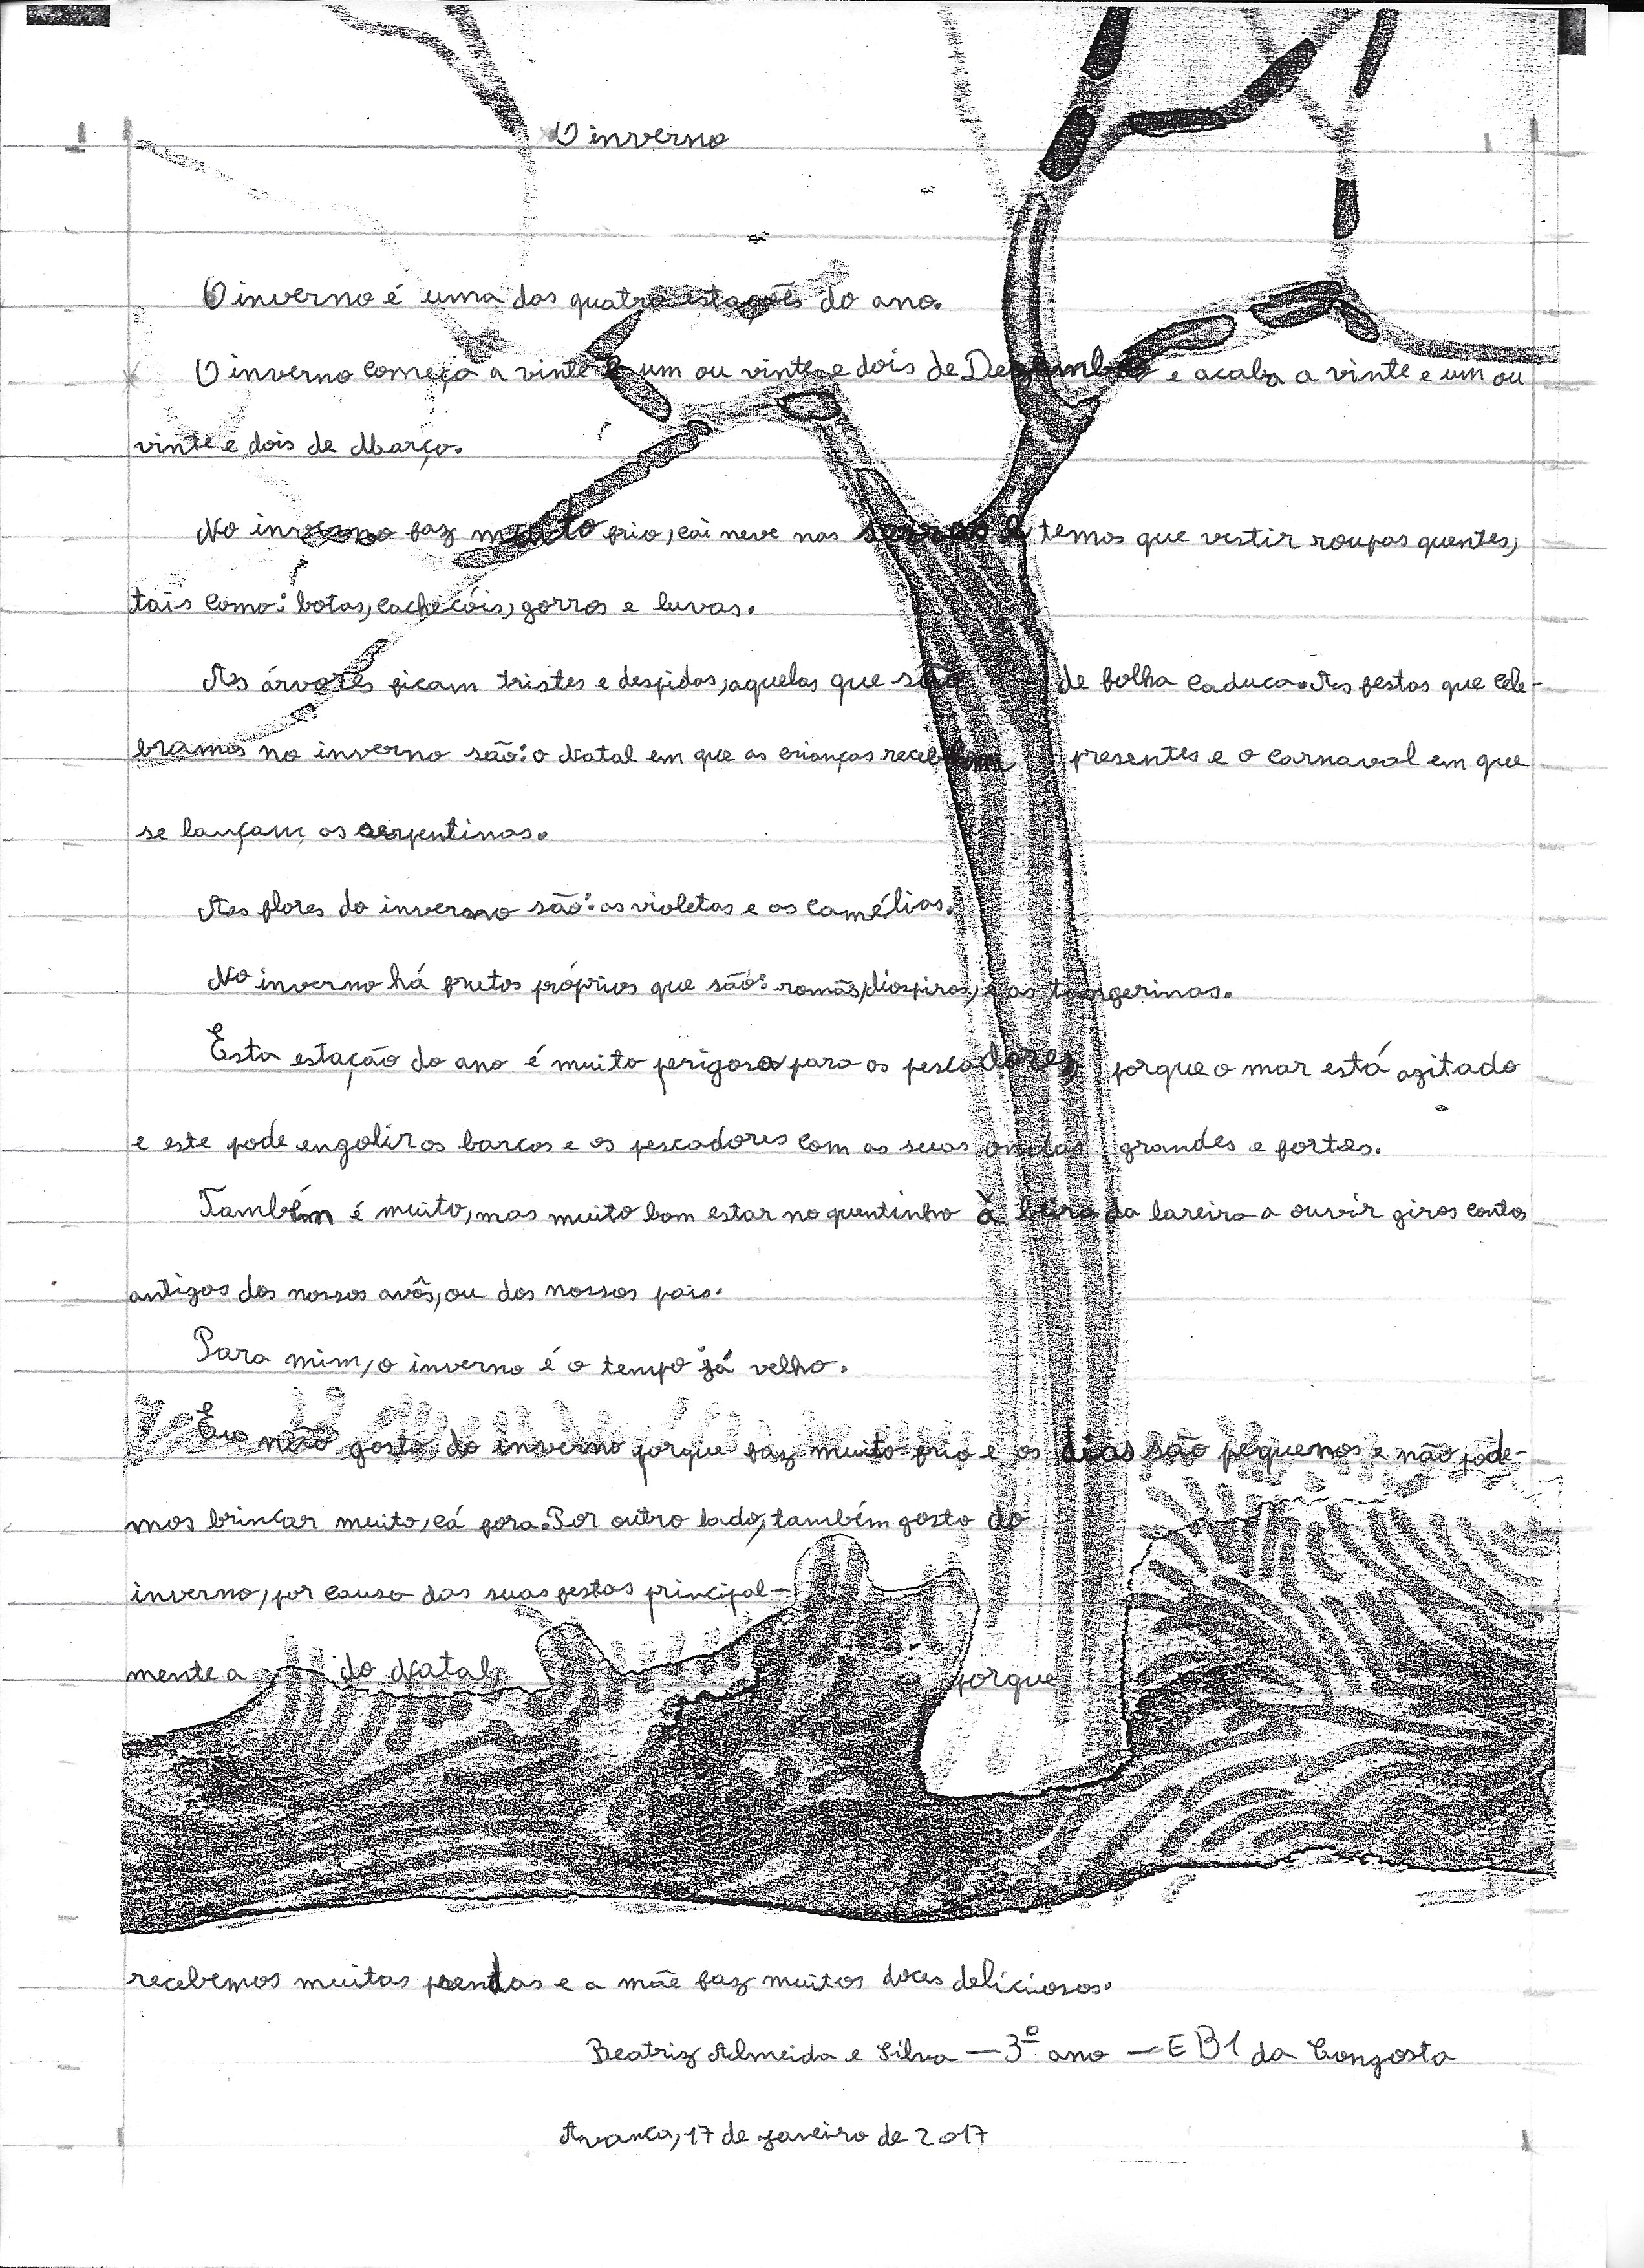 O inverno
O inverno é uma das quatro estações do ano.
O inverno começa a vinte e um ou vinte e dois de Dezembro e acaba a vinte e um ou
vinte e dois de Março.
No inverno faz muito frio, cai neve nas serras e temos que vestir roupas quentes,
tais como: botas, cachecóis, gorros e luvas.
As árvores ficam tristes e despidas, aquelas que são de folha caduca. As festas que cele-
bramos no inverno são: o Natal em que as crianças recebem presentes e o carnaval em que
se lançam as serpentinas.
As flores do inverno são: as violetas e as camélias.
No inverno há frutos próprios que são: romãs, diospiros, e as tangerinas.
Esta estação do ano é muito perigosa para os pescadores, porque o mar está agitado
e este pode engolir os barcos e os pescadores com as suas ondas grandes e fortes.
Também é muito, mas muito bom estar no quentinho à beira da lareira a ouvir giros contos
antigos dos nossos avôs, ou dos nossos pais.
Para mim, o inverno é o tempo já velho.
Eu não gosto do inverno porque faz muito frio e os dias são pequenos e não pode-
mos brincar muito, cá fora. Por outro lado, também gosto do
inverno, por causa das suas festas principal-
mente a do Natal, porque
recebemos muitas prendas e a mãe faz muitos doces deliciosos.
Beatriz Almeida e Silva - 3º ano - EB1 da Congosta
Avanca, 17 de janeiro de 2017